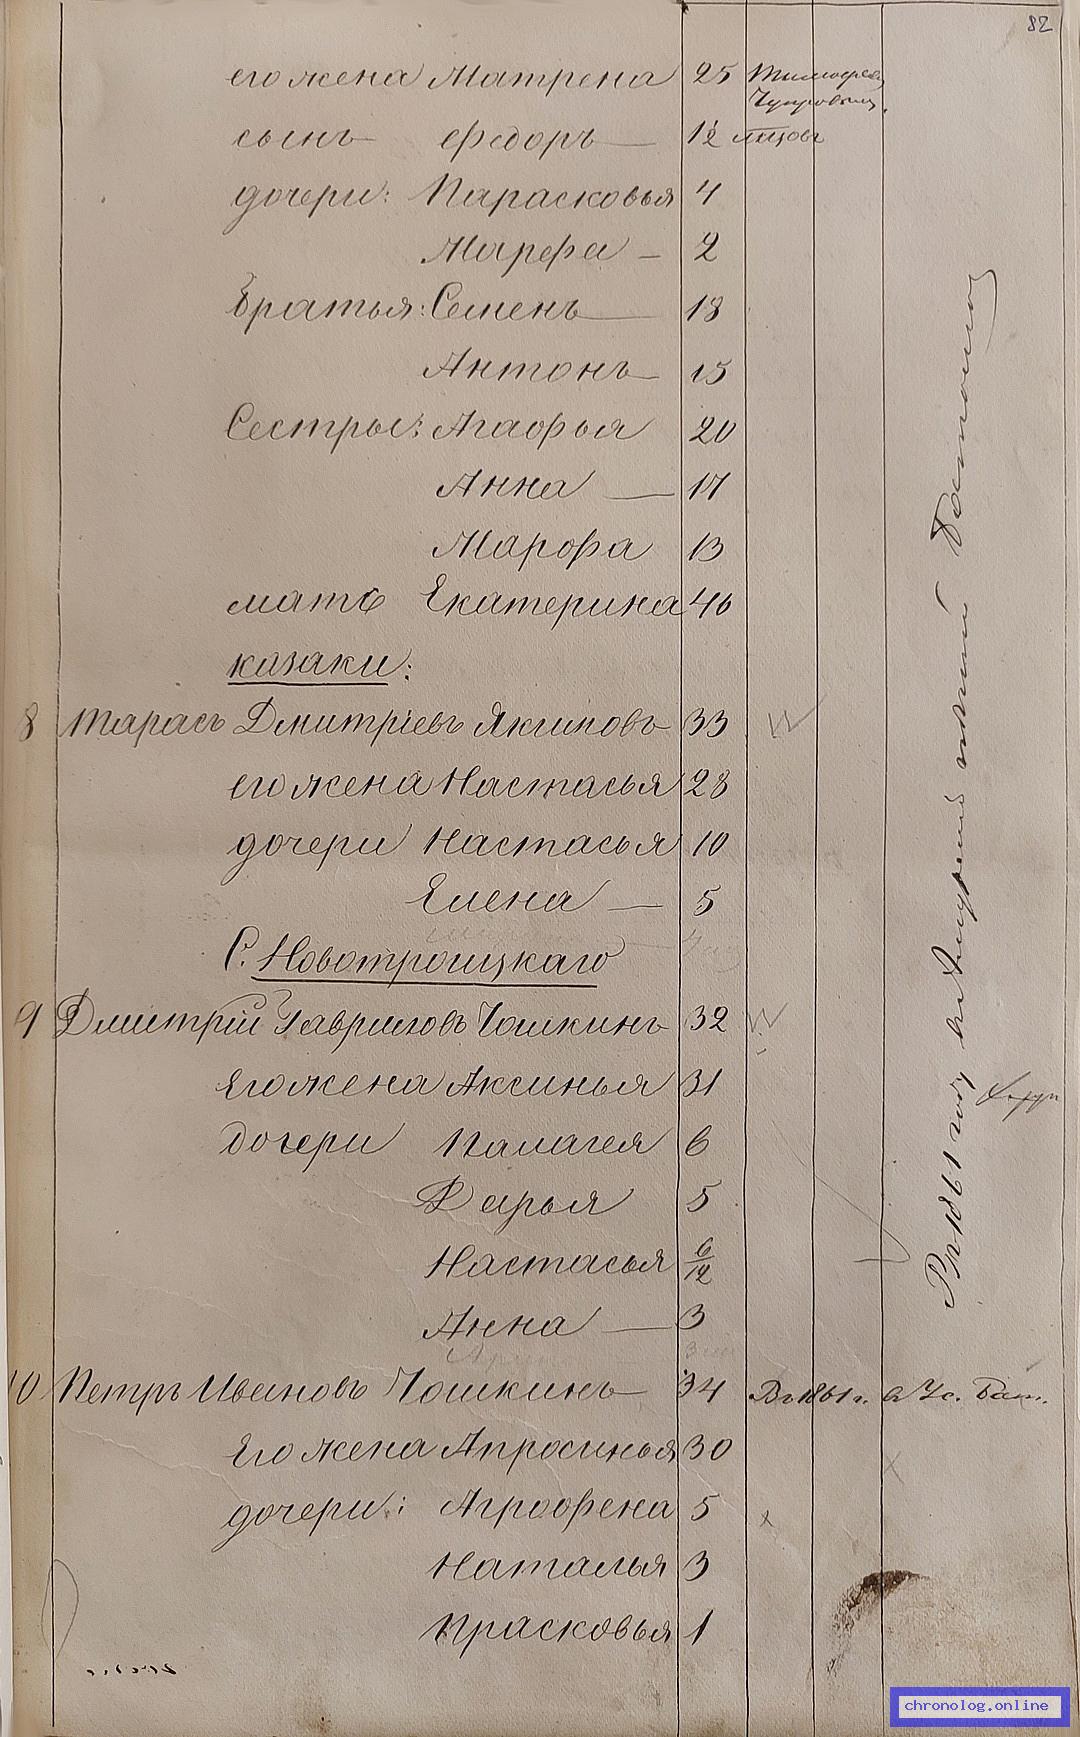 82
его жена Матрена 25
сынъ Федоръ 1½
дочери: Парасковья 4
Марфа 2
Братья: Семенъ 18
Антонъ 15
Сестры: Агафья 20
Анна 17
Марфа 13
мать Екатерина 46
казаки:
8 Тарасъ Дмитріевъ 33
его жена Настасья 28
дочери Настасья 10
Елена 5
С. Новотроицкаго
9 Дмитрій Гавриловъ Чошкинъ 32
Его жена Аксинья 31
дочери Палагея 6
Дарья 5
Настасья 6/12
Анна 3
10 Петръ Ивановъ Чошкинъ 34 Въ 1861 г. в Ус. Бат.
Его жена Апросинья 30
дочери: Агрофена 5
Наталья 3
Прасковья 1
Въ 1861 году в Амурской пеший Батальон
chronolog.online